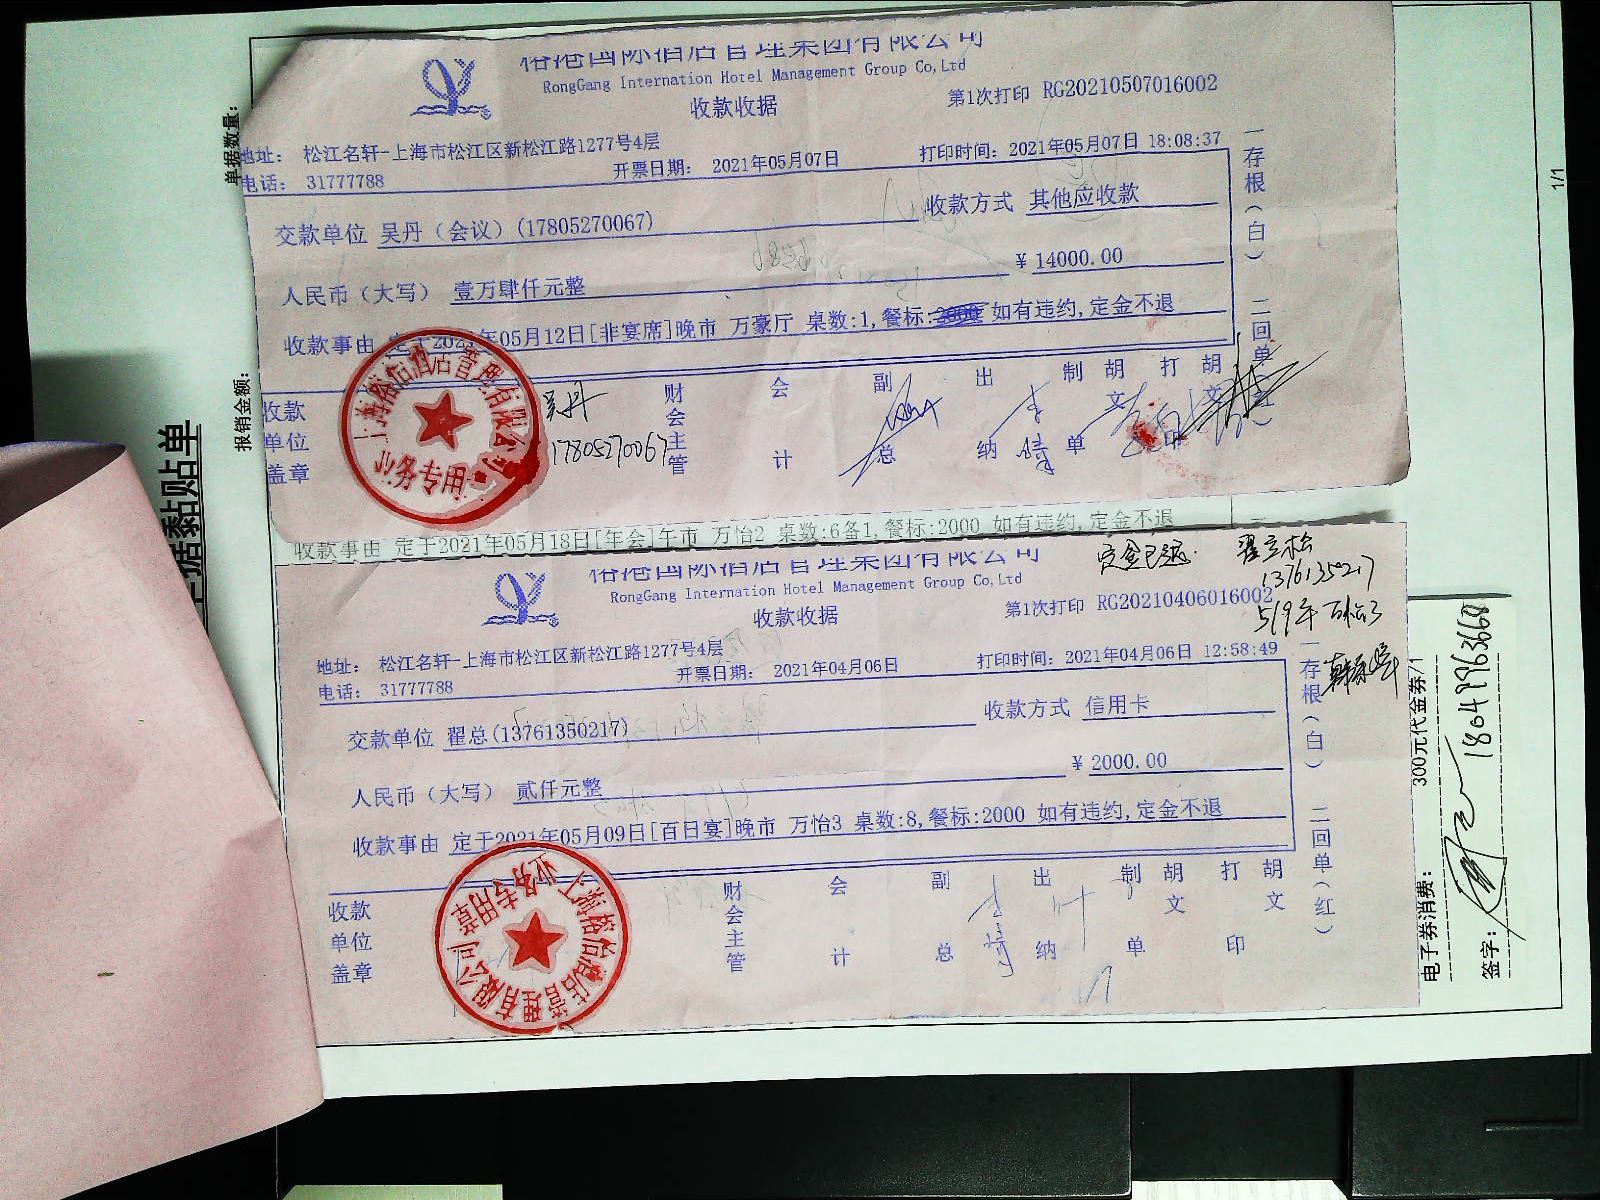 单据数量:
报销金额:
据黏贴单
1/1
国际酒店管理集团有限公司
RongGang Internation Hotel Management Group Co,Ltd
收款收据
第1次打印 RG20210507016002
地址: 松江名轩-上海市松江区新松江路1277号4层
电话: 31777788
开票日期: 2021年05月07日
打印时间: 2021年05月07日 18:08:37
交款单位 吴丹（会议）(17805270067)
收款方式 其他应收款
人民币（大写） 壹万肆仟元整
¥ 14000.00
收款事由 定于2021年05月12日[非宴席]晚市 万豪厅 桌数:1,餐标: 如有违约,定金不退
收款单位盖章
吴丹
17805270067
财会主管
会计
副总
出纳
制单
胡文
打印
胡文
一存根（白） 二回单（红）
业务专用章
收款事由 定于2021年05月18日[年会]午市 万怡2 桌数:6备1,餐标:2000 如有违约,定金不退
国际酒店管理集团有限公司
RongGang Internation Hotel Management Group Co,Ltd
收款收据
定金已退
翟立松
13761350217
5/9年 万怡3
第1次打印 RG20210406016002
地址: 松江名轩-上海市松江区新松江路1277号4层
电话: 31777788
开票日期: 2021年04月06日
打印时间: 2021年04月06日 12:58:49
交款单位 翟总(13761350217)
收款方式 信用卡
人民币（大写） 贰仟元整
¥ 2000.00
收款事由 定于2021年05月09日[百日宴]晚市 万怡3 桌数:8,餐标:2000 如有违约,定金不退
收款单位盖章
财会主管
会计
副总
出纳
制单
胡文
打印
胡文
一存根（白） 二回单（红）
业务专用章
300元代金券/1
电子券消费:
签字:
18049963668